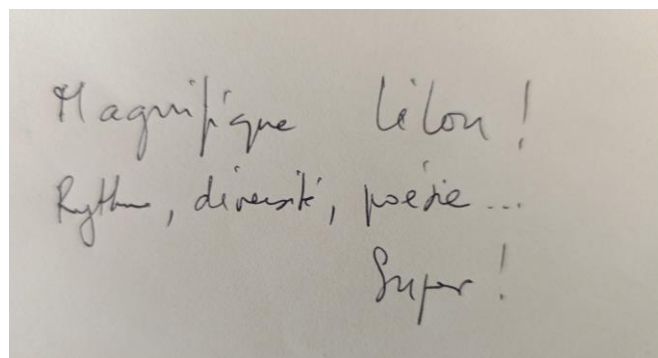 Magnifique Lilou !
Rythme, diversité, poésie...
Super !